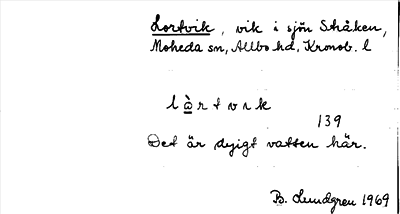 Lortvik, vik i sjön Stråken,
Moheda sn, Allbo hd, Kronob. l
l ò̲ r t v ɩ k
139
Det är dyigt vatten här.
B. Lundgren 1969